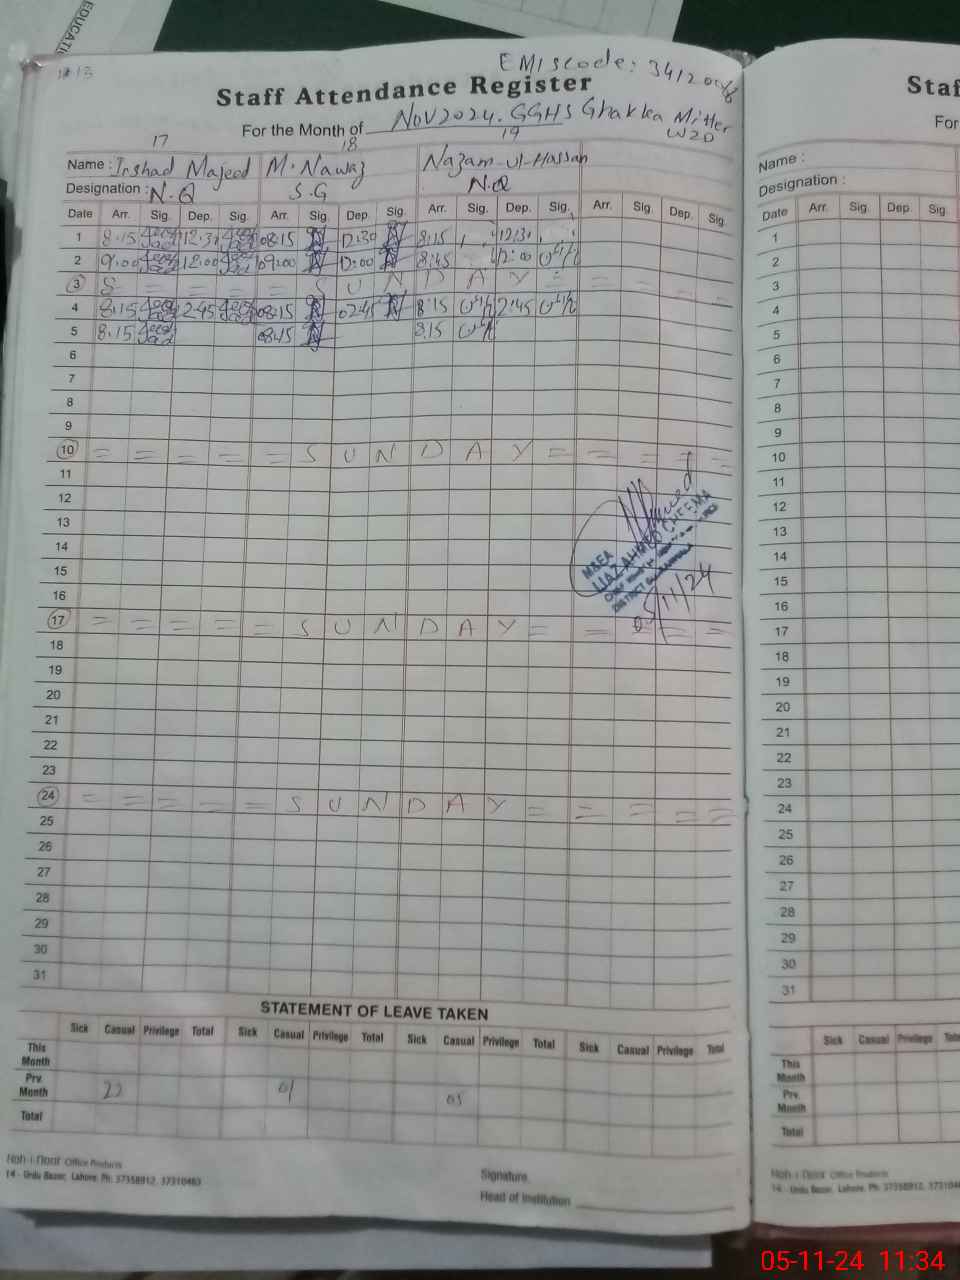 EDUCATI
13
EMIScode: 3412
Staff Attendance Register
For the Month of Nov 2024. GGHS Ghakka Mitter
WZD
17 18 19
Name : Irshad Majeed M. Nawaz Nazam-ul-Hassan
Designation : N.Q S.G N.Q
Date Arr. Sig. Dep. Sig. Arr. Sig. Dep. Sig. Arr. Sig. Dep. Sig. Arr. Sig. Dep. Sig.
1 8.15 12.30 08:15 12:30 8:15 12:30
2 9.00 12.00 09:00 12:00 8:45 12:00
3 S = = = = S U N D A Y = = = = =
4 8.15 2.45 08:15 02:45 8:15 2:45
5 8.15 08:15 8:15
6
7
8
9
10 = = = = = S U N D A Y = = = = =
11
12
13
14
15
16
17 = = = = = S U N D A Y = = = = =
18
19
20
21
22
23
24 = = = = = S U N D A Y = = = = =
25
26
27
28
29
30
31
M&EA
IJAZ AHMED CHEEMA
DISTRICT
05/11/24
STATEMENT OF LEAVE TAKEN
Sick Casual Privilege Total Sick Casual Privilege Total Sick Casual Privilege Total Sick Casual Privilege Total
This
Month
Prv.
Month 22 01 05
Total
Koh-i-Noor Office Products
14 - Urdu Bazar, Lahore. Ph: 37358912, 37310463
Signature.
Head of Institution
Staf
For
Name :
Designation :
Date Arr. Sig. Dep. Sig.
1
2
3
4
5
6
7
8
9
10
11
12
13
14
15
16
17
18
19
20
21
22
23
24
25
26
27
28
29
30
31
Sick Casual Privilege Tota
This
Month
Prv.
Month
Total
Koh-i-Noor Office Products
14 - Urdu Bazar, Lahore. Ph: 37358912, 3731046
05-11-24 11:34